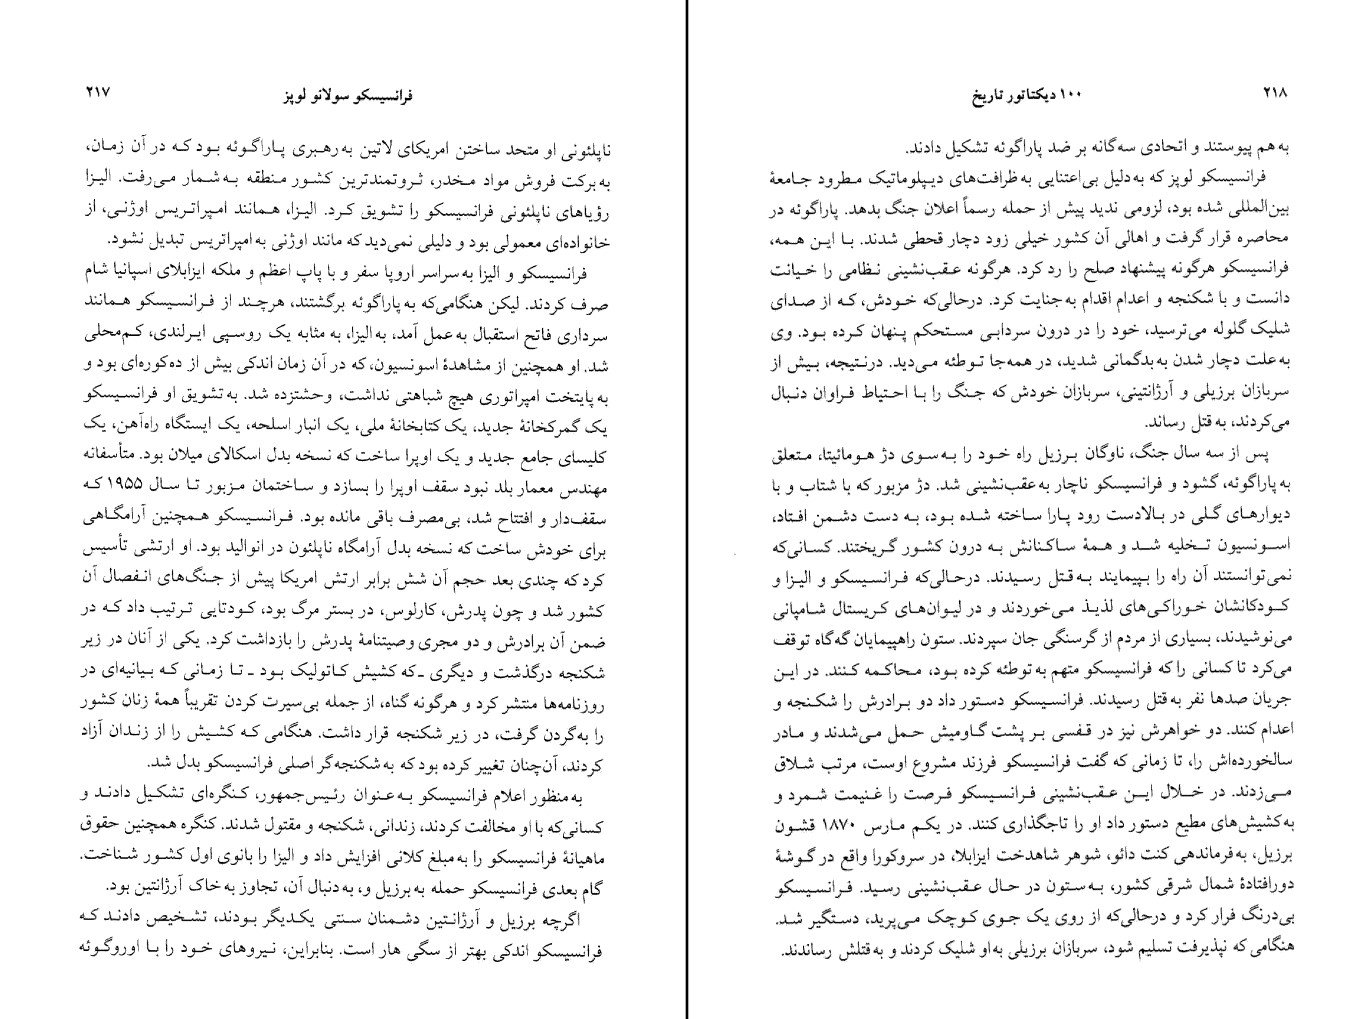 فرانسیسکو سولانو لوپز ۲۱۷
ناپلئونی او متحد ساختن امریکای لاتین به رهبری پاراگوئه بود که در آن زمان،
به برکت فروش مواد مخدر، ثروتمندترین کشور منطقه به شمار می‌رفت. الیزا
رؤیاهای ناپلئونی فرانسیسکو را تشویق کرد. الیزا، همانند امپراتریس اوژنی، از
خانواده‌ای معمولی بود و دلیلی نمی‌دید که مانند اوژنی به امپراتریس تبدیل نشود.
فرانسیسکو و الیزا به سراسر اروپا سفر و با پاپ اعظم و ملکه ایزابلای اسپانیا شام
صرف کردند. لیکن هنگامی‌که به پاراگوئه برگشتند، هرچند از فرانسیسکو همانند
سرداری فاتح استقبال به عمل آمد، به الیزا، به مثابه یک روسپی ایرلندی، کم‌محلی
شد. او همچنین از مشاهدهٔ اسونسیون، که در آن زمان اندکی بیش از ده‌کوره‌ای بود و
به پایتخت امپراتوری هیچ شباهتی نداشت، وحشتزده شد. به تشویق او فرانسیسکو
یک گمرکخانهٔ جدید، یک کتابخانهٔ ملی، یک انبار اسلحه، یک ایستگاه راه‌آهن، یک
کلیسای جامع جدید و یک اوپرا ساخت که نسخه بدل اسکالای میلان بود. متأسفانه
مهندس معمار بلد نبود سقف اوپرا را بسازد و ساختمان مزبور تا سال ۱۹۵۵ که
سقف‌دار و افتتاح شد، بی‌مصرف باقی مانده بود. فرانسیسکو همچنین آرامگاهی
برای خودش ساخت که نسخه بدل آرامگاه ناپلئون در انوالید بود. او ارتشی تأسیس
کرد که چندی بعد حجم آن شش برابر ارتش امریکا پیش از جنگ‌های انفصال آن
کشور شد و چون پدرش، کارلوس، در بستر مرگ بود، کودتایی ترتیب داد که در
ضمن آن برادرش و دو مجری وصیتنامهٔ پدرش را بازداشت کرد. یکی از آنان در زیر
شکنجه درگذشت و دیگری ـ که کشیش کاتولیک بود ـ تا زمانی که بیانیه‌ای در
روزنامه‌ها منتشر کرد و هرگونه گناه، از جمله بی‌سیرت کردن تقریباً همهٔ زنان کشور
را به گردن گرفت، در زیر شکنجه قرار داشت. هنگامی که کشیش را از زندان آزاد
کردند، آن‌چنان تغییر کرده بود که به شکنجه‌گر اصلی فرانسیسکو بدل شد.
به منظور اعلام فرانسیسکو به عنوان رئیس‌جمهور، کنگره‌ای تشکیل دادند و
کسانی‌که با او مخالفت کردند، زندانی، شکنجه و مقتول شدند. کنگره همچنین حقوق
ماهیانهٔ فرانسیسکو را به مبلغ کلانی افزایش داد و الیزا را بانوی اول کشور شناخت.
گام بعدی فرانسیسکو حمله به برزیل و، به دنبال آن، تجاوز به خاک آرژانتین بود.
اگرچه برزیل و آرژانتین دشمنان سنتی یکدیگر بودند، تشخیص دادند که
فرانسیسکو اندکی بهتر از سگی هار است. بنابراین، نیروهای خود را با اوروگوئه
۲۱۸ ۱۰۰ دیکتاتور تاریخ
به هم پیوستند و اتحادی سه‌گانه بر ضد پاراگوئه تشکیل دادند.
فرانسیسکو لوپز که به دلیل بی‌اعتنایی به ظرافت‌های دیپلوماتیک مطرود جامعهٔ
بین‌المللی شده بود، لزومی ندید پیش از حمله رسماً اعلان جنگ بدهد. پاراگوئه در
محاصره قرار گرفت و اهالی آن کشور خیلی زود دچار قحطی شدند. با این همه،
فرانسیسکو هرگونه پیشنهاد صلح را رد کرد. هرگونه عقب‌نشینی نظامی را خیانت
دانست و با شکنجه و اعدام اقدام به جنایت کرد. درحالی‌که خودش، که از صدای
شلیک گلوله می‌ترسید، خود را در درون سردابی مستحکم پنهان کرده بود. وی
به علت دچار شدن به بدگمانی شدید، در همه‌جا توطئه می‌دید. درنتیجه، بیش از
سربازان برزیلی و آرژانتینی، سربازان خودش که جنگ را با احتیاط فراوان دنبال
می‌کردند، به قتل رساند.
پس از سه سال جنگ، ناوگان برزیل راه خود را به سوی دژ هومائیتا، متعلق
به پاراگوئه، گشود و فرانسیسکو ناچار به عقب‌نشینی شد. دژ مزبور که با شتاب و با
دیوارهای گلی در بالادست رود پارا ساخته شده بود، به دست دشمن افتاد،
اسونسیون تخلیه شد و همهٔ ساکنانش به درون کشور گریختند. کسانی‌که
نمی‌توانستند آن راه را بپیمایند به قتل رسیدند. درحالی‌که فرانسیسکو و الیزا و
کودکانشان خوراکی‌های لذیذ می‌خوردند و در لیوان‌های کریستال شامپانی
می‌نوشیدند، بسیاری از مردم از گرسنگی جان سپردند. ستون راهپیمایان گه‌گاه توقف
می‌کرد تا کسانی را که فرانسیسکو متهم به توطئه کرده بود، محاکمه کنند. در این
جریان صدها نفر به قتل رسیدند. فرانسیسکو دستور داد دو برادرش را شکنجه و
اعدام کنند. دو خواهرش نیز در قفسی بر پشت گاومیش حمل می‌شدند و مادر
سالخورده‌اش را، تا زمانی که گفت فرانسیسکو فرزند مشروع اوست، مرتب شلاق
می‌زدند. در خلال این عقب‌نشینی فرانسیسکو فرصت را غنیمت شمرد و
به کشیش‌های مطیع دستور داد او را تاجگذاری کنند. در یکم مارس ۱۸۷۰ قشون
برزیل، به فرماندهی کنت دائو، شوهر شاهدخت ایزابلا، در سروکورا واقع در گوشهٔ
دورافتادهٔ شمال شرقی کشور، به ستون در حال عقب‌نشینی رسید. فرانسیسکو
بی‌درنگ فرار کرد و درحالی‌که از روی یک جوی کوچک می‌پرید، دستگیر شد.
هنگامی که نپذیرفت تسلیم شود، سربازان برزیلی به او شلیک کردند و به قتلش رساندند.